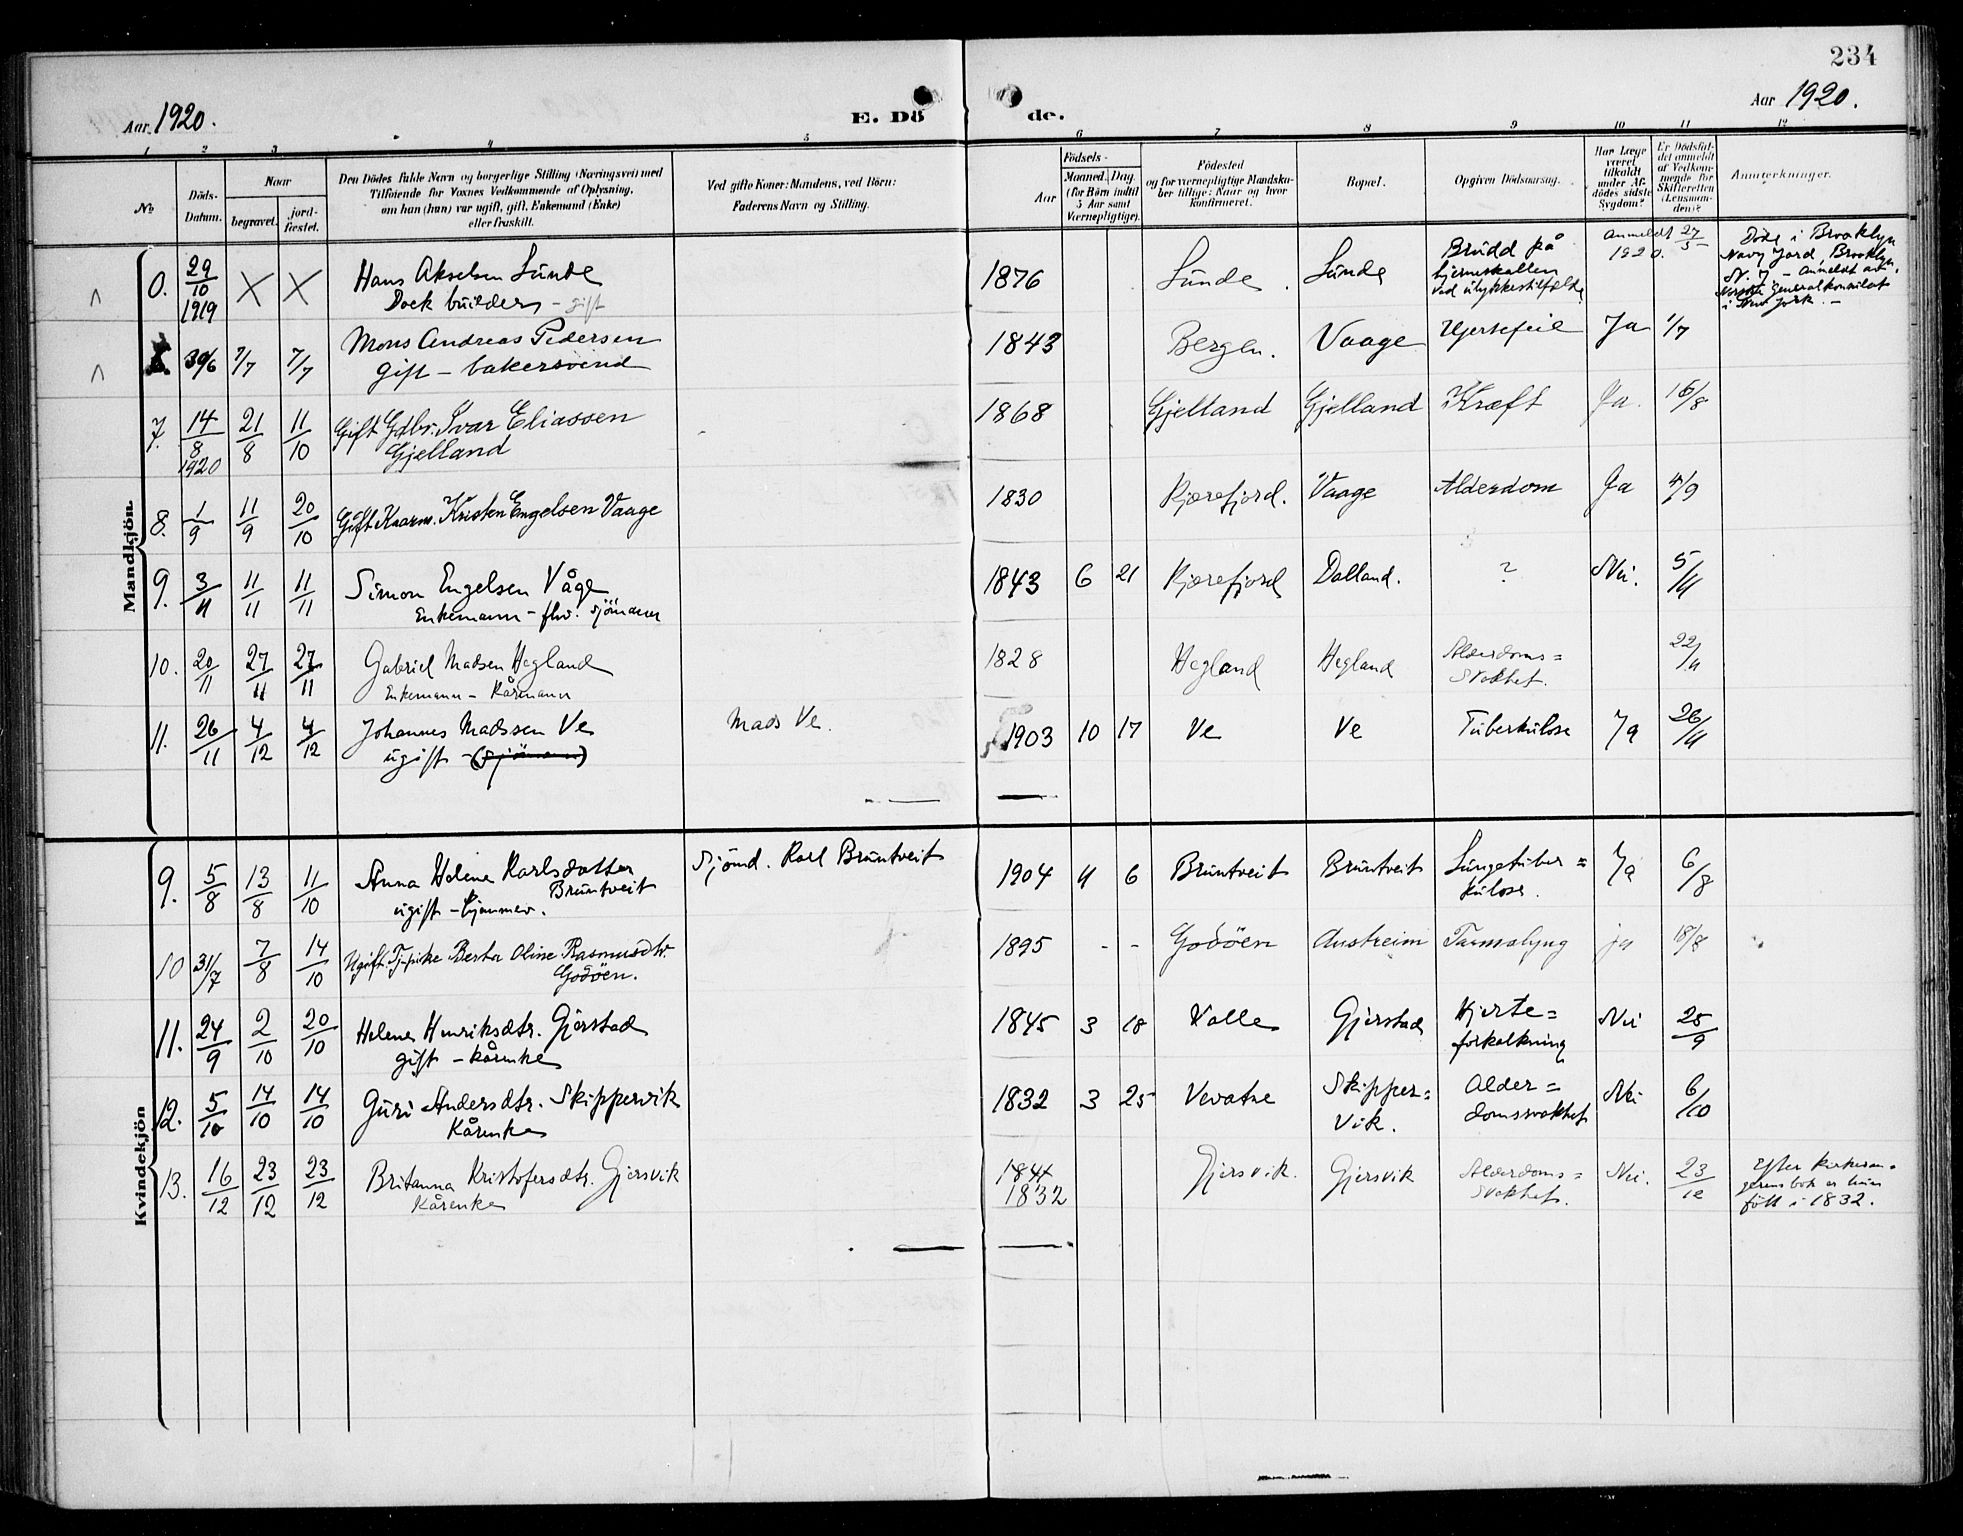 234
Aar 1920.
E. Dö de.
Aar 1920.
1 2 3 4 5 6 7 8 9 10 11 12
No
Döds-Datum.
Naar
begravet.
jord-fæstet.
Den Dödes fulde Navn og borgerlige Stilling (Næringsvei) med
Tilföiende for Voxnes Vedkommende af Oplysning,
om han (hun) var ugift, gift, Enkemand (Enke)
eller fraskilt.
Ved gifte Koner: Mandens, ved Börn:
Faderens Navn og Stilling.
Födsels-
Aar
Maaned. Dag.
(for Börn indtil
5 Aar samt
Værnepligtige).
Födested
og for værnepligtige Mandska-
ber tillige: Naar og hvor
konfirmeret.
Bopæl.
Opgiven Dödsaarsag.
Har Læge
været
tilkaldt
under Af-
dödes sidste
Sygdom?
Er Dödsfal-
det anmeldt
af Vedkom-
mende for
Skifteretten
(Lensman-
den)?
Anmærkninger.
Mandkjön.
0. 29/10 1919 X X Hans Akselsen Sunde 1876 Sunde. Sunde Brudd på
Dock builder – gift
hjerneskallen
ved ulykkestilfælde
Anmeldt 27/5
1920.
Döde i Brooklyn
Navy Yard, Brooklyn,
N. Y – Anmeldt av
Norske generalkonsulat
i New York. –
30/6 7/7 7/7 Mons Andreas Pedersen 1843 Bergen. Vaage Hjertefeil Ja 1/7
gift – bakersvend
7. 14/8 1920 21/8 11/10 Gift Gdbr. Ivar Eliassen 1868 Gjelland Gjelland Kræft Ja. 16/8
Gjelland
8. 1/9 11/9 20/10 Gift Kaarm. Kristen Engelsen Vaage 1830 Kjærefjord. Vaage Alderdom Ja 4/9
9. 3/11 11/11 11/11 Simon Engelsen Våge 1843 6 21 Kjærefjord Dalland. ? Nei. 5/11
Enkemann – fhv. sjömann
10. 20/11 27/11 27/11 Gabriel Madsen Hegland 1828 Hegland Hegland Alderdoms= 22/11
Enkemann – Kårmann
svakhet.
11. 26/11 4/12 4/12 Johannes Madssen Ve Mads Ve. 1903 10 17 Ve Ve Tuberkulose Ja 26/11
ugift – (sjömann)
Kvindekjön
9. 5/8 13/8 11/10 Anna Helene Karlsdatter Sjömd. Karl Bruntveit 1904 4 6 Bruntveit Bruntveit Lungetuber= Ja 6/8
Bruntveit
ugift – hjemmev.
kulose.
10 31/7 7/8 14/10 Ugift Tj.pike Berta Oline Rasmusdtr. 1895 - - Godöen Austreim Tarmslyng ja 18/8
Godöen.
11. 24/9 2/10 20/10 Helene Henriksdtr. Gjerstad 1845 3 18 Valle Gjerstad Hjerte= Nei 25/9
gift – kårenke
forkalkning
12. 5/10 14/10 14/10 Guri Andersdtr. Skippervik 1832 3 25 Vevatne Skipper= Alder= Nei 6/10
Kårenke
vik.
domssvakhet
13. 16/12 23/12 23/12 Britanna Kristofersdtr. Gjersvik 1844 Gjersvik. Gjersvik Alderdoms= Nei. 23/12
Kårenke
1832
svakhet.
Efter kirkesan-
gerens bok er hun
född i 1832.